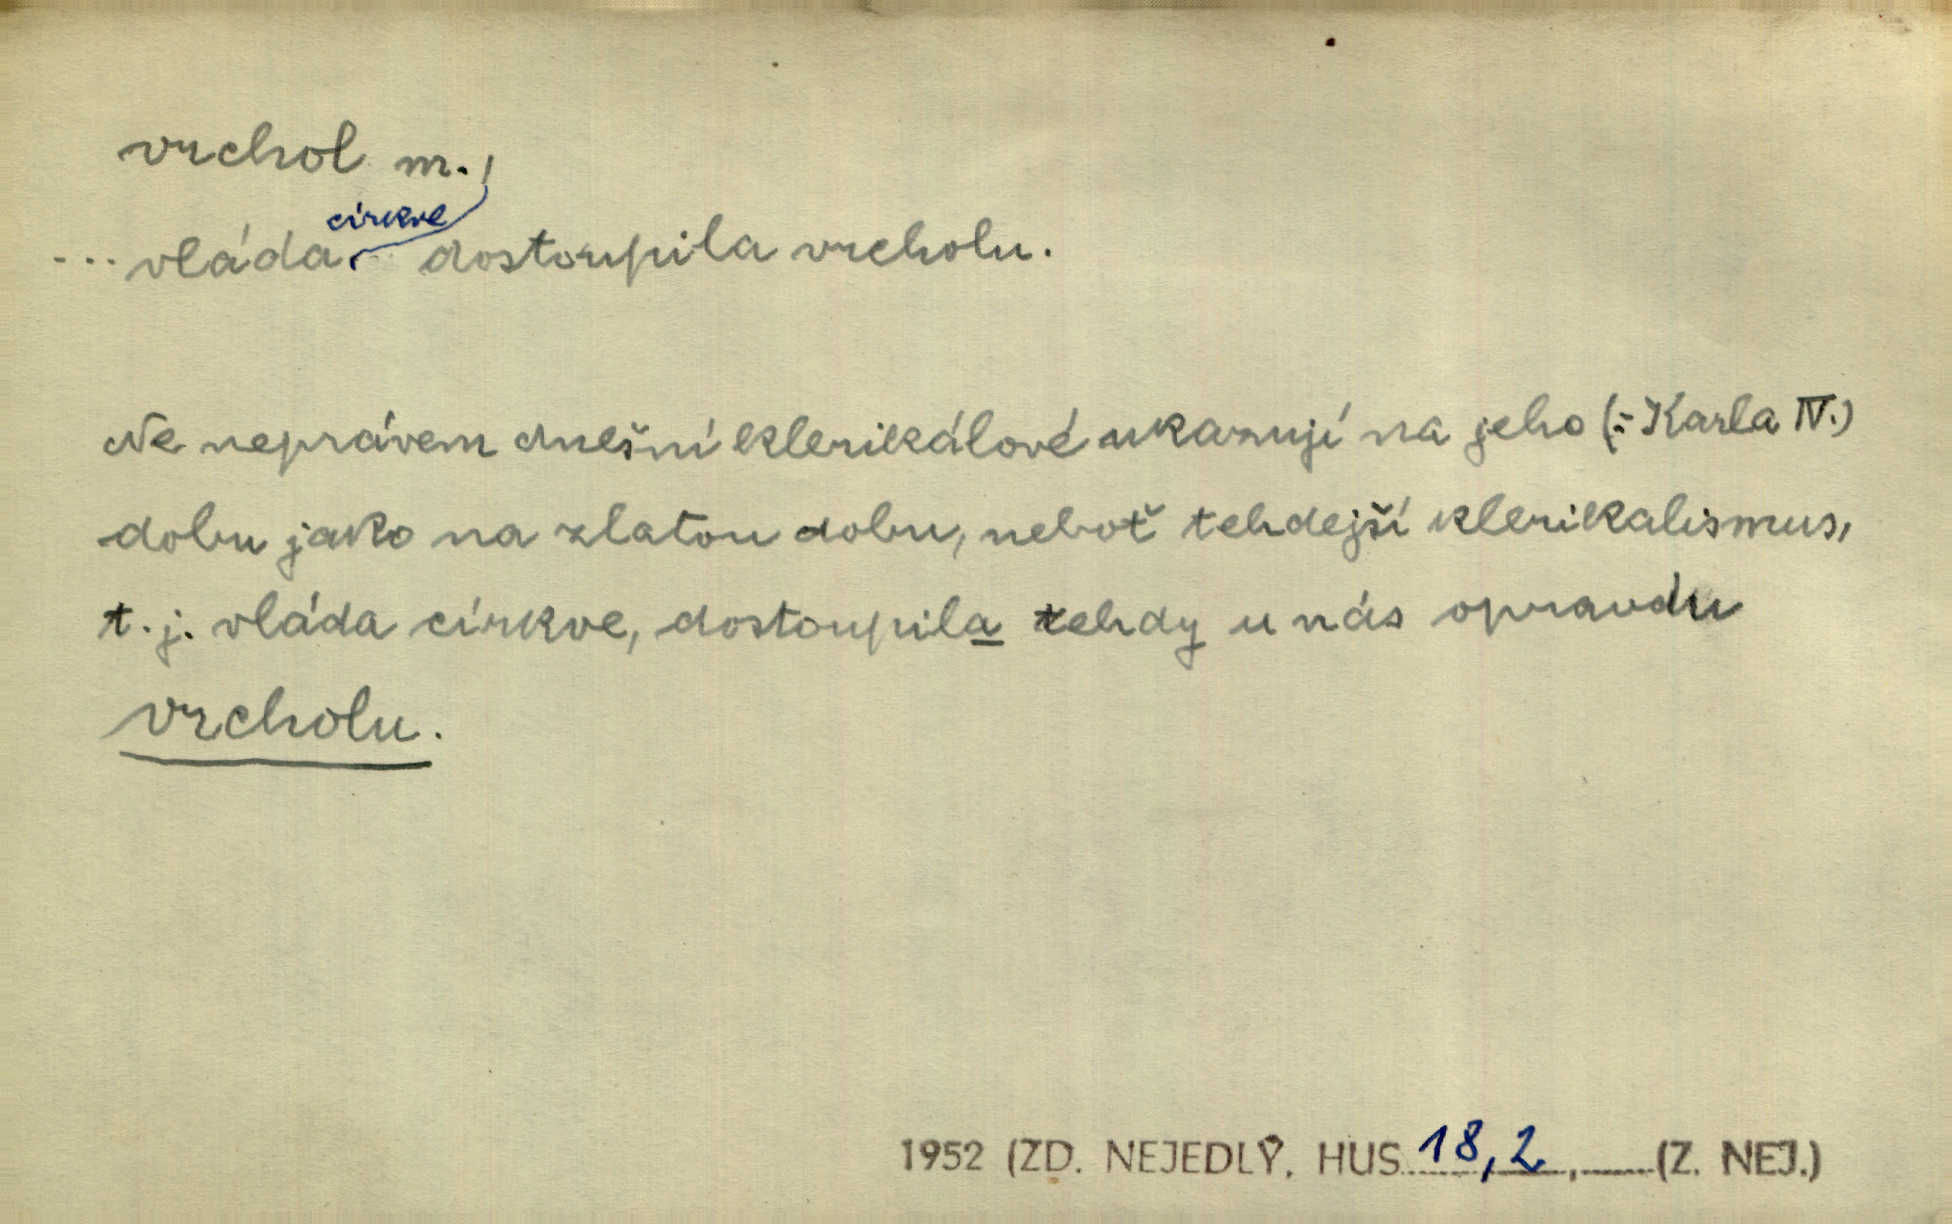 vrchol m.,
...vláda církve dostoupila vrcholu.
Ne neprávem dnešní klerikálové ukazují na jeho (= Karla IV.)
dobu jako na zlatou dobu, neboť tehdejší klerikalismus,
t. j. vláda církve, dostoupila tehdy u nás opravdu
vrcholu.
1952 (ZD. NEJEDLÝ, HUS 18,2, (Z. NEJ.)